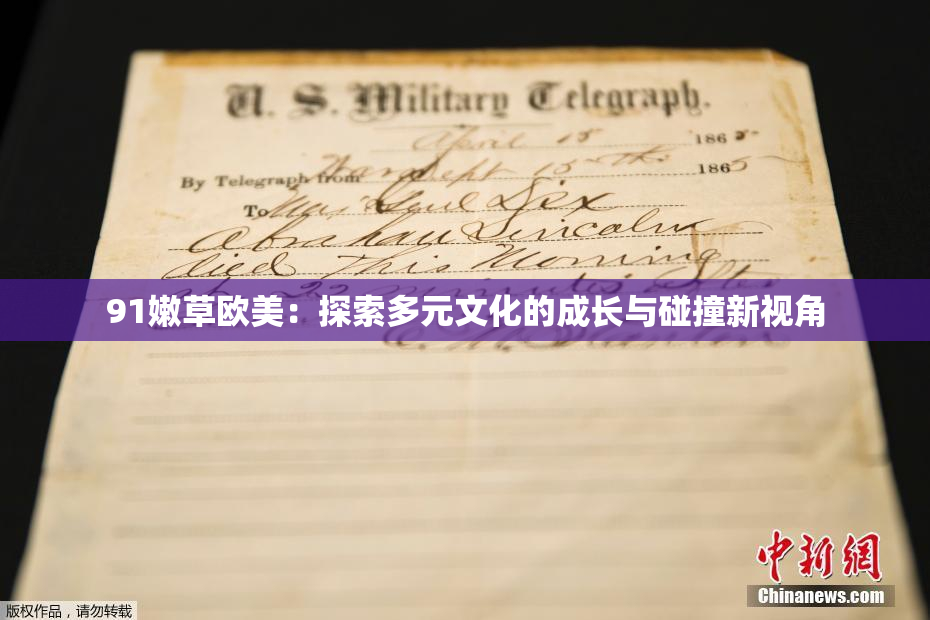 U. S. Military Telegraph.
April 15 1865
By Telegraph from War Dept 15th 1865
To Maj Genl Dix
Abraham Lincoln
died This Morning
at 22 minutes after
91嫩草欧美：探索多元文化的成长与碰撞新视角
中新網
Chinanews.com
版权作品，请勿转载